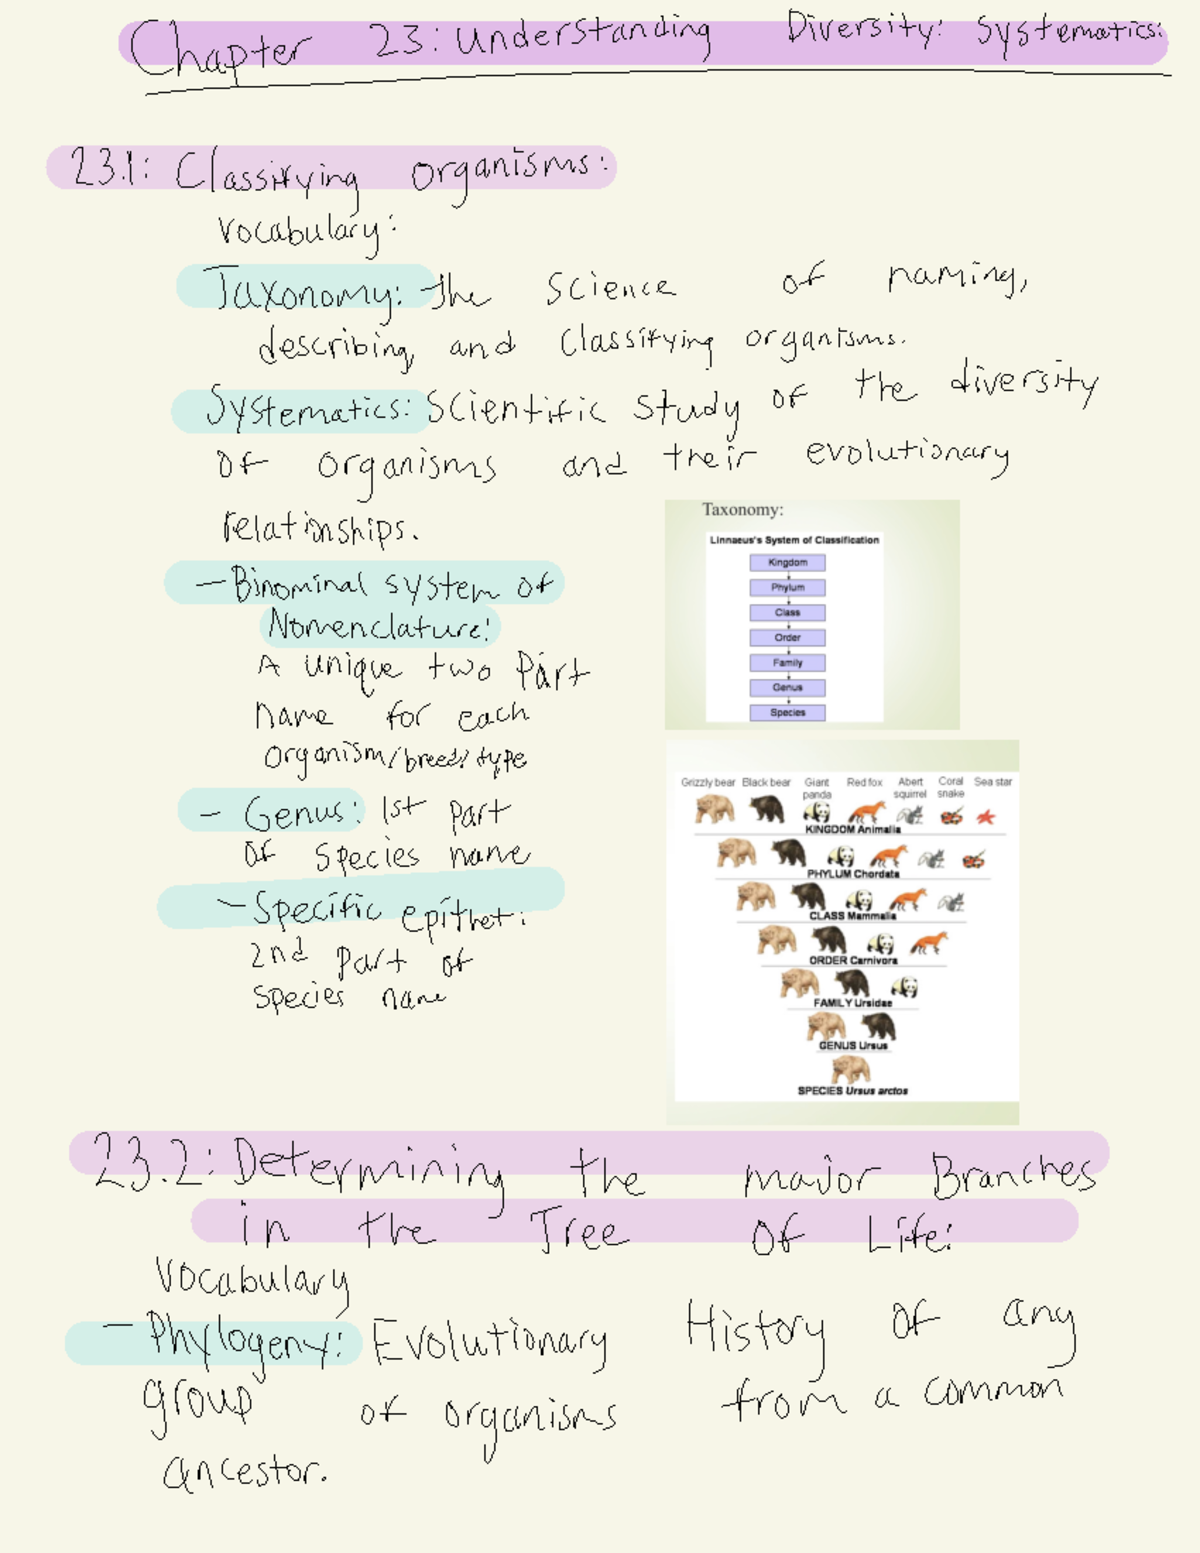 Chapter 23: Understanding Diversity: Systematics:
23.1: Classifying organisms:
Vocabulary:
Taxonomy: the science of naming,
describing, and classifying organisms.
Systematics: Scientific study of the diversity
of organisms and their evolutionary
relationships.
- Binominal system of
Nomenclature:
A unique two part
name for each
organism/breed/type
- Genus: 1st part
of species name
- Specific epithet:
2nd part of
species name
Taxonomy:
Linnaeus's System of Classification
Kingdom
Phylum
Class
Order
Family
Genus
Species
Grizzly bear Black bear Giant panda Red fox Abert squirrel Coral snake Sea star
KINGDOM Animalia
PHYLUM Chordata
CLASS Mammalia
ORDER Carnivora
FAMILY Ursidae
GENUS Ursus
SPECIES Ursus arctos
23.2: Determining the major Branches
in the Tree of Life:
Vocabulary
- Phylogeny: Evolutionary History of any
group of organisms from a common
ancestor.